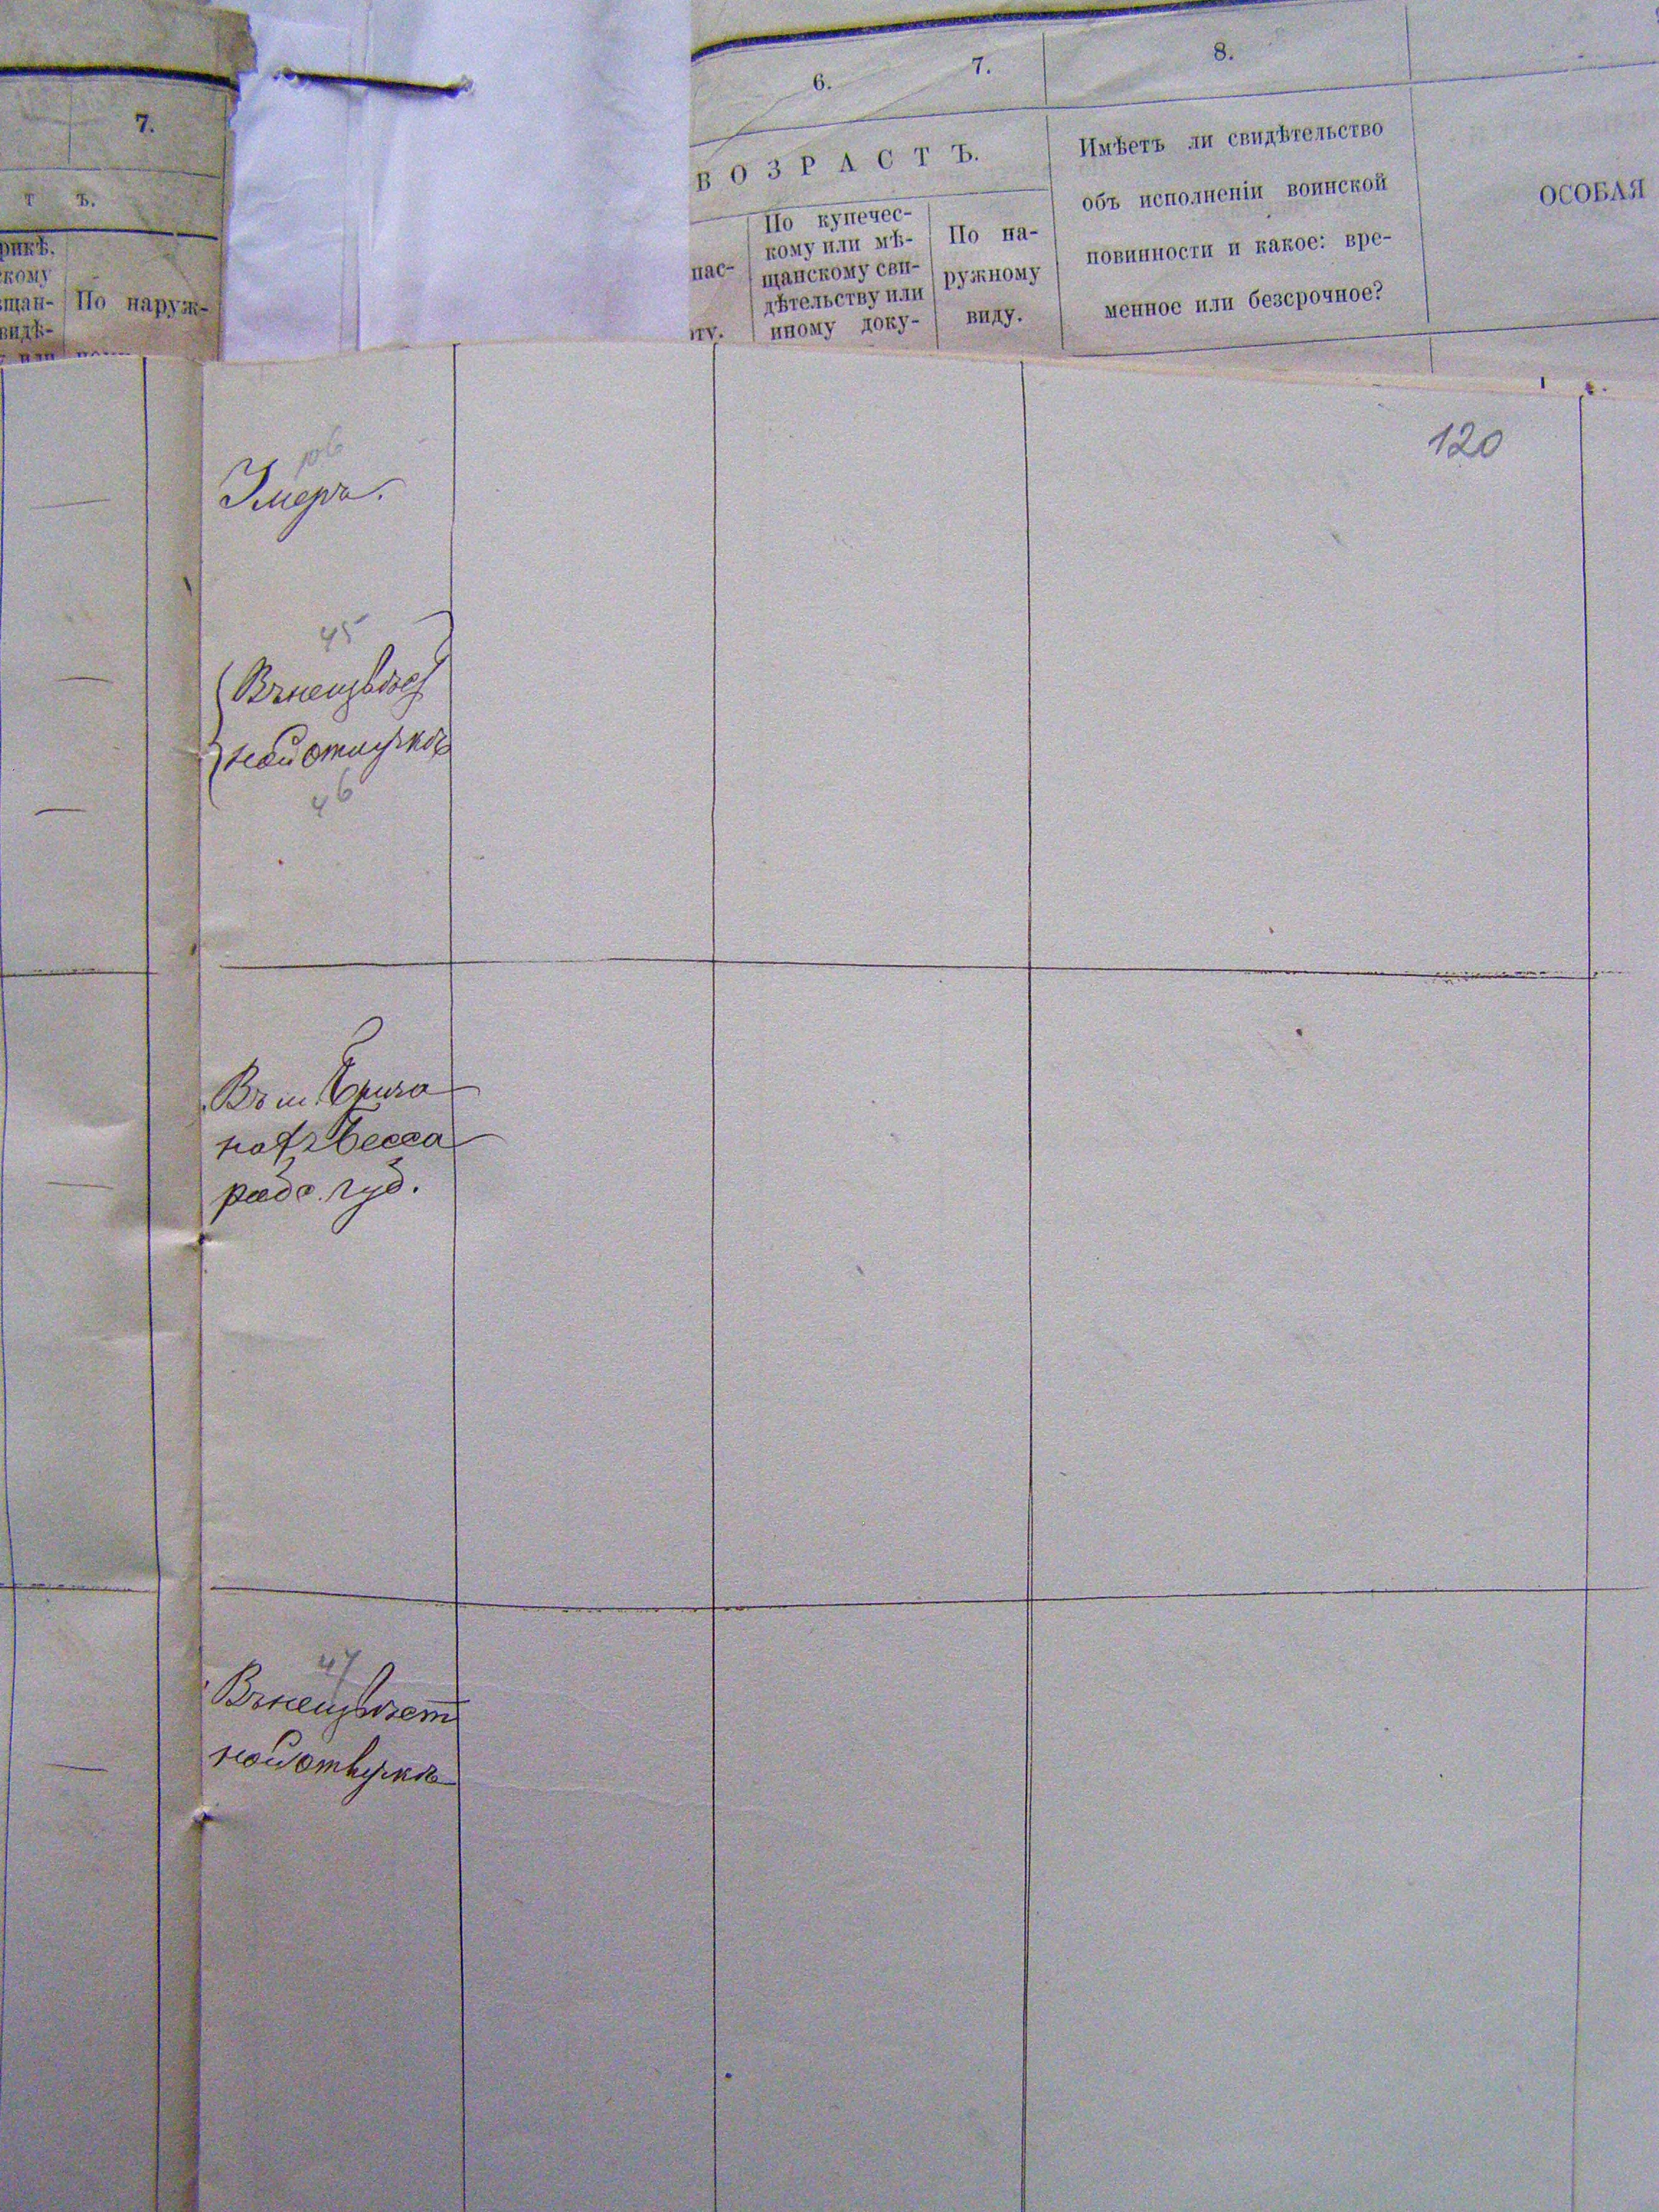 7.
Т Ъ.
рикѣ,
скому
щан-
видѣ-
По наруж-
6. 7. 8.
ВОЗРАСТЪ.
пас-
ту.
По купечес-
кому или мѣ-
щанскому сви-
дѣтельству или
иному доку-
По на-
ружному
виду.
Имѣетъ ли свидѣтельство
объ исполненіи воинской
повинности и какое: вре-
менное или безсрочное?
ОСОБАЯ
120
106
Умеръ.
45
Въ неизвѣст
ной отлучкѣ
46
Въ м.
Бесса
раб. губ.
47
Въ неизвѣст
ной отлучкѣ